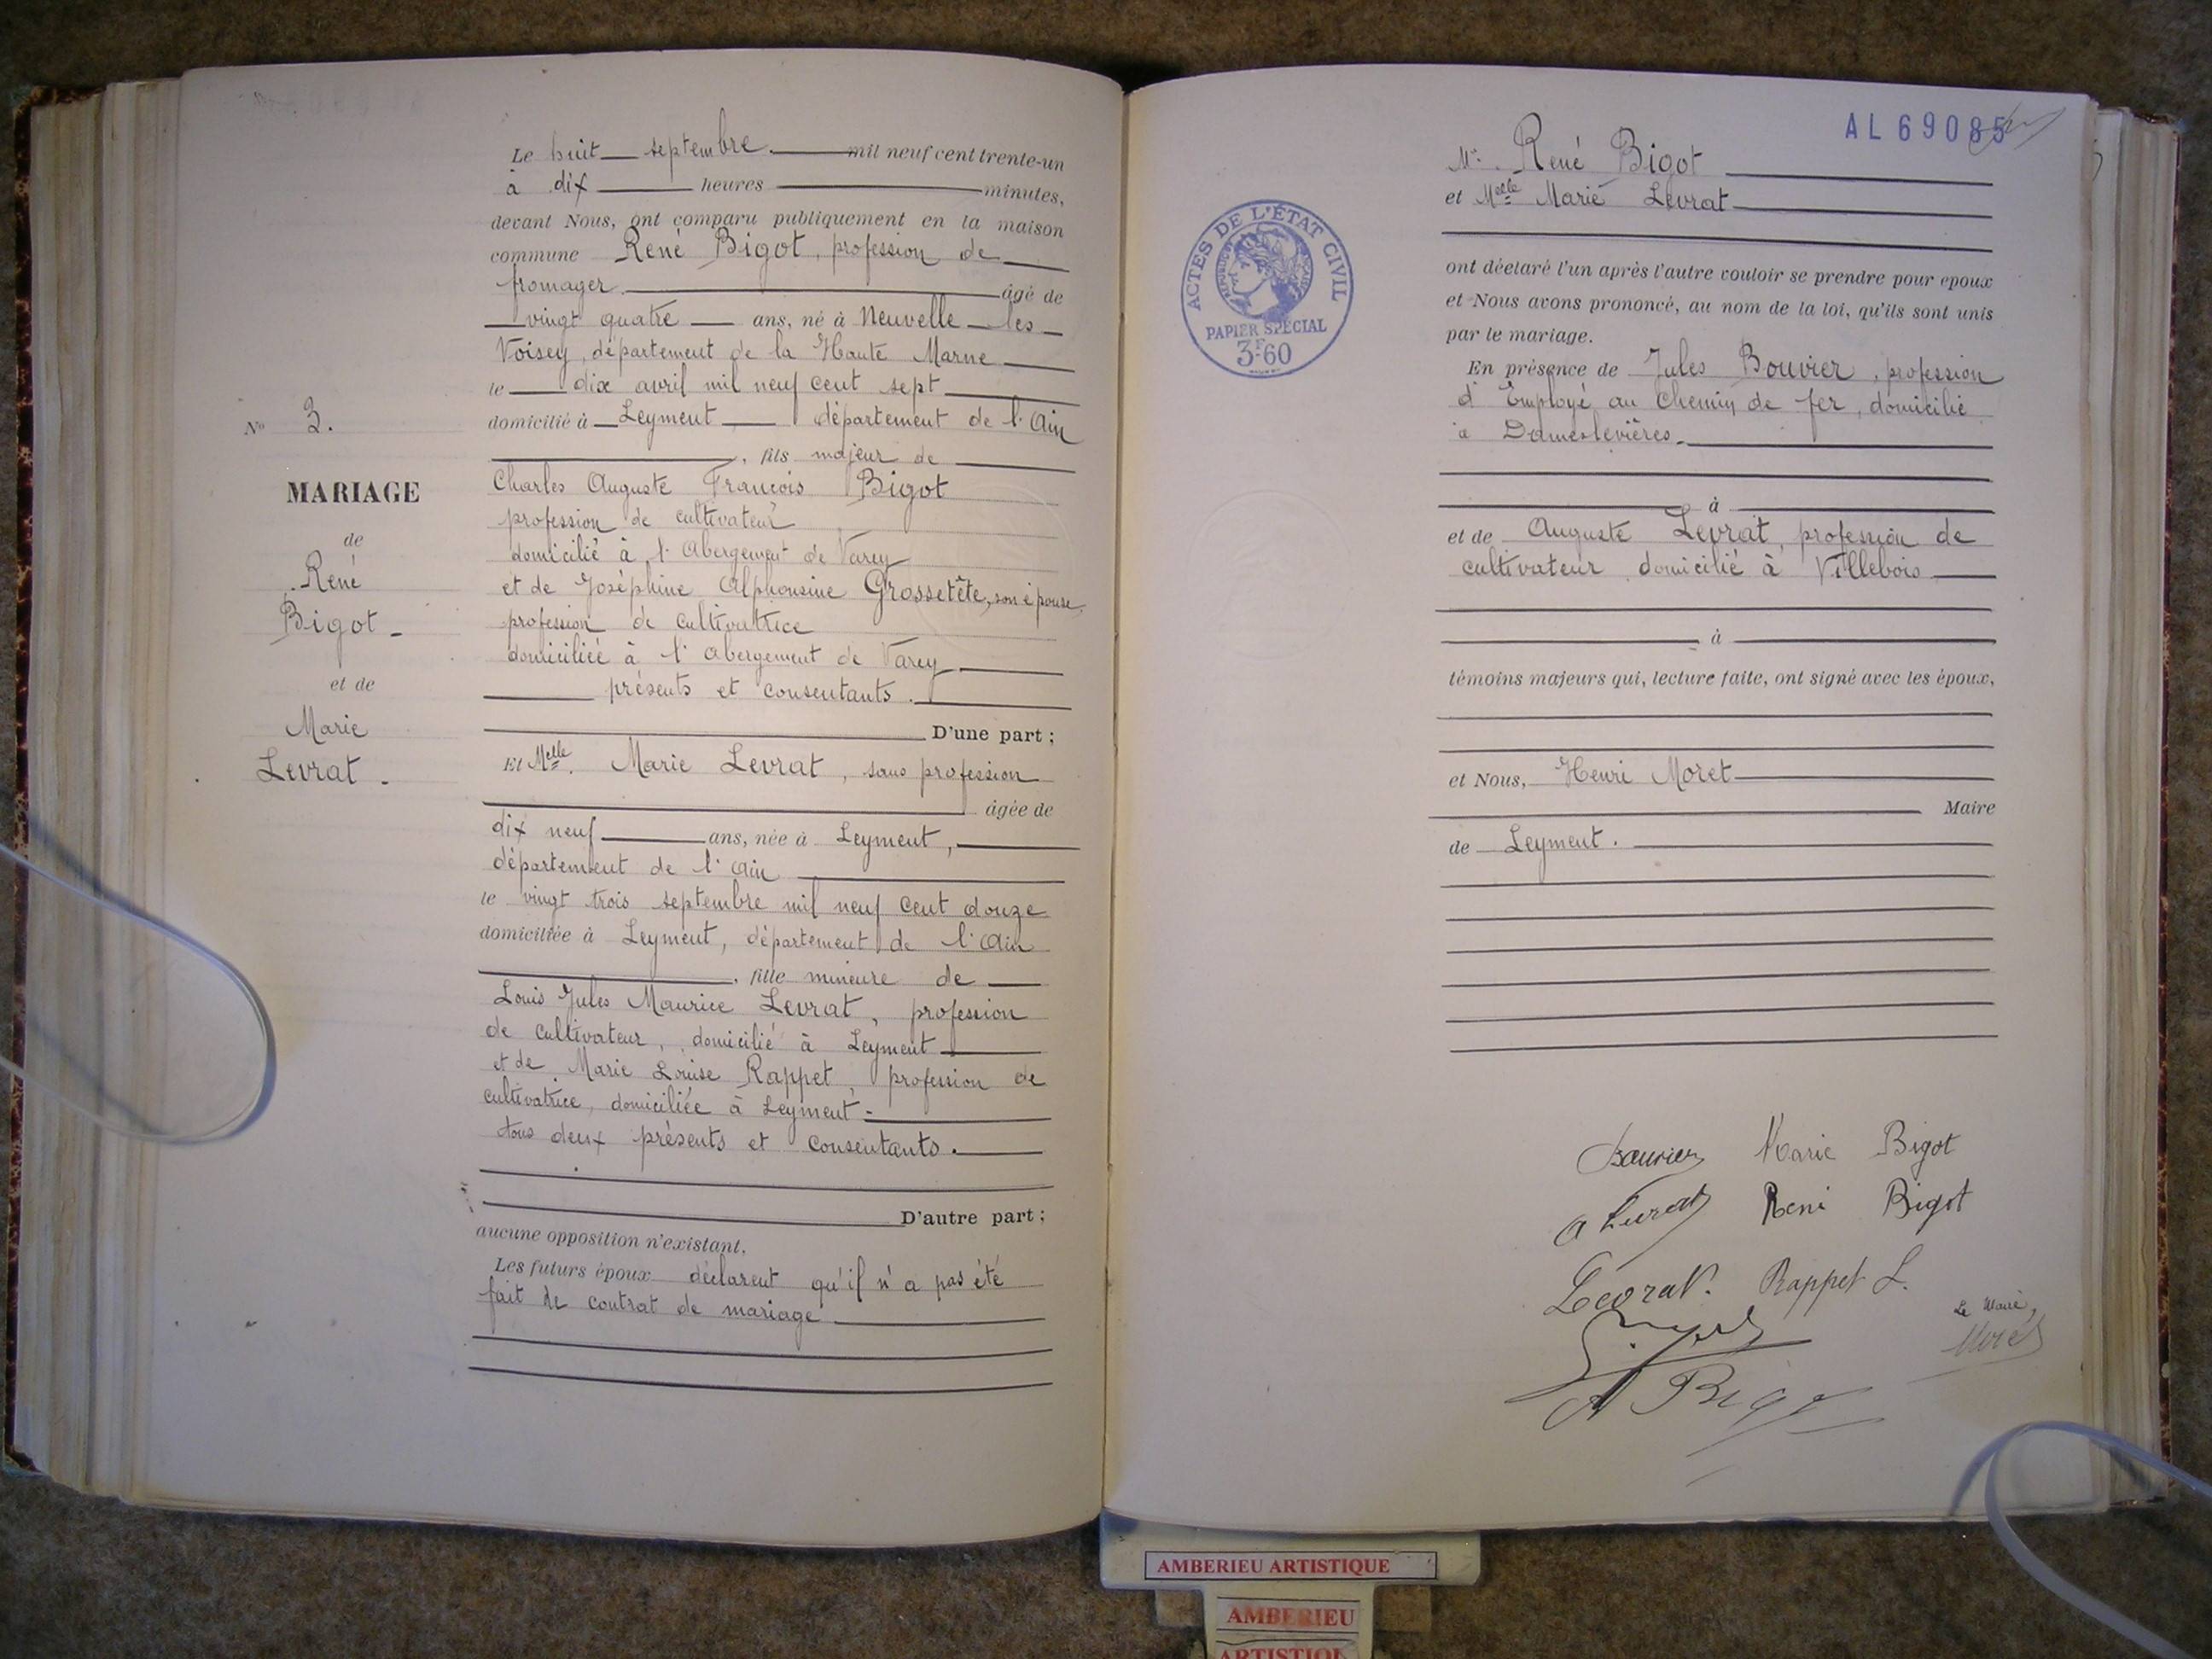 Le huit septembre. mil neuf cent trente-un
à dix heures minutes,
devant Nous, ont comparu publiquement en la maison
commune René Bigot, profession de
fromager. âgé de
vingt quatre ans, né à Neuvelle-les
Voisey, département de la Haute Marne
le dix avril mil neuf cent sept
domicilié à Leyment département de l'Ain
, fils majeur de
Charles Auguste François Bigot
profession de cultivateur
domicilié à l'Abergement de Varey
et de Joséphine Alphonsine Grossetête, son épouse,
profession de cultivatrice
domiciliée à l'abergement de Varey
présents et consentants.
D'une part ;
Et Melle. Marie Levrat, sans profession
âgée de
dix neuf ans, née à Leyment,
département de l'ain
le vingt trois septembre mil neuf cent douze
domiciliée à Leyment, département de l'Ain
, fille mineure de
Louis Jules Maurice Levrat, profession
de cultivateur, domicilié à Leyment
et de Marie Louise Rappet, profession de
cultivatrice, domiciliée à Leyment-
tous deux présents et consentants.
D'autre part ;
aucune opposition n'existant,
Les futurs époux déclarent qu'il n'a pas été
fait de contrat de mariage
No 3.
MARIAGE
de
René
Bigot -
et de
Marie
Levrat -
AL 69085
Mr. René Bigot
et Melle Marie Levrat
ont déclaré l'un après l'autre vouloir se prendre pour epoux
et Nous avons prononcé, au nom de la loi, qu'ils sont unis
par le mariage.
En présence de Jules Bouvier, profession
d'Employé au Chemin de fer, domicilié
à Damelevières.
à
et de Auguste Levrat, profession de
cultivateur domicilié à Villebois
à
témoins majeurs qui, lecture faite, ont signé avec les époux,
et Nous, Henri Moret
Maire
de Leyment.
ACTES DE L'ÉTAT CIVIL
RÉPUBLIQUE FRANÇAISE
PAPIER SPÉCIAL
3F60
Bouvier Marie Bigot
A Levrat René Bigot
Levrat. Rappet L.
Le Maire,
Moret
A Bigot
AMBERIEU ARTISTIQUE
AMBERIEU
ARTISTIQUE